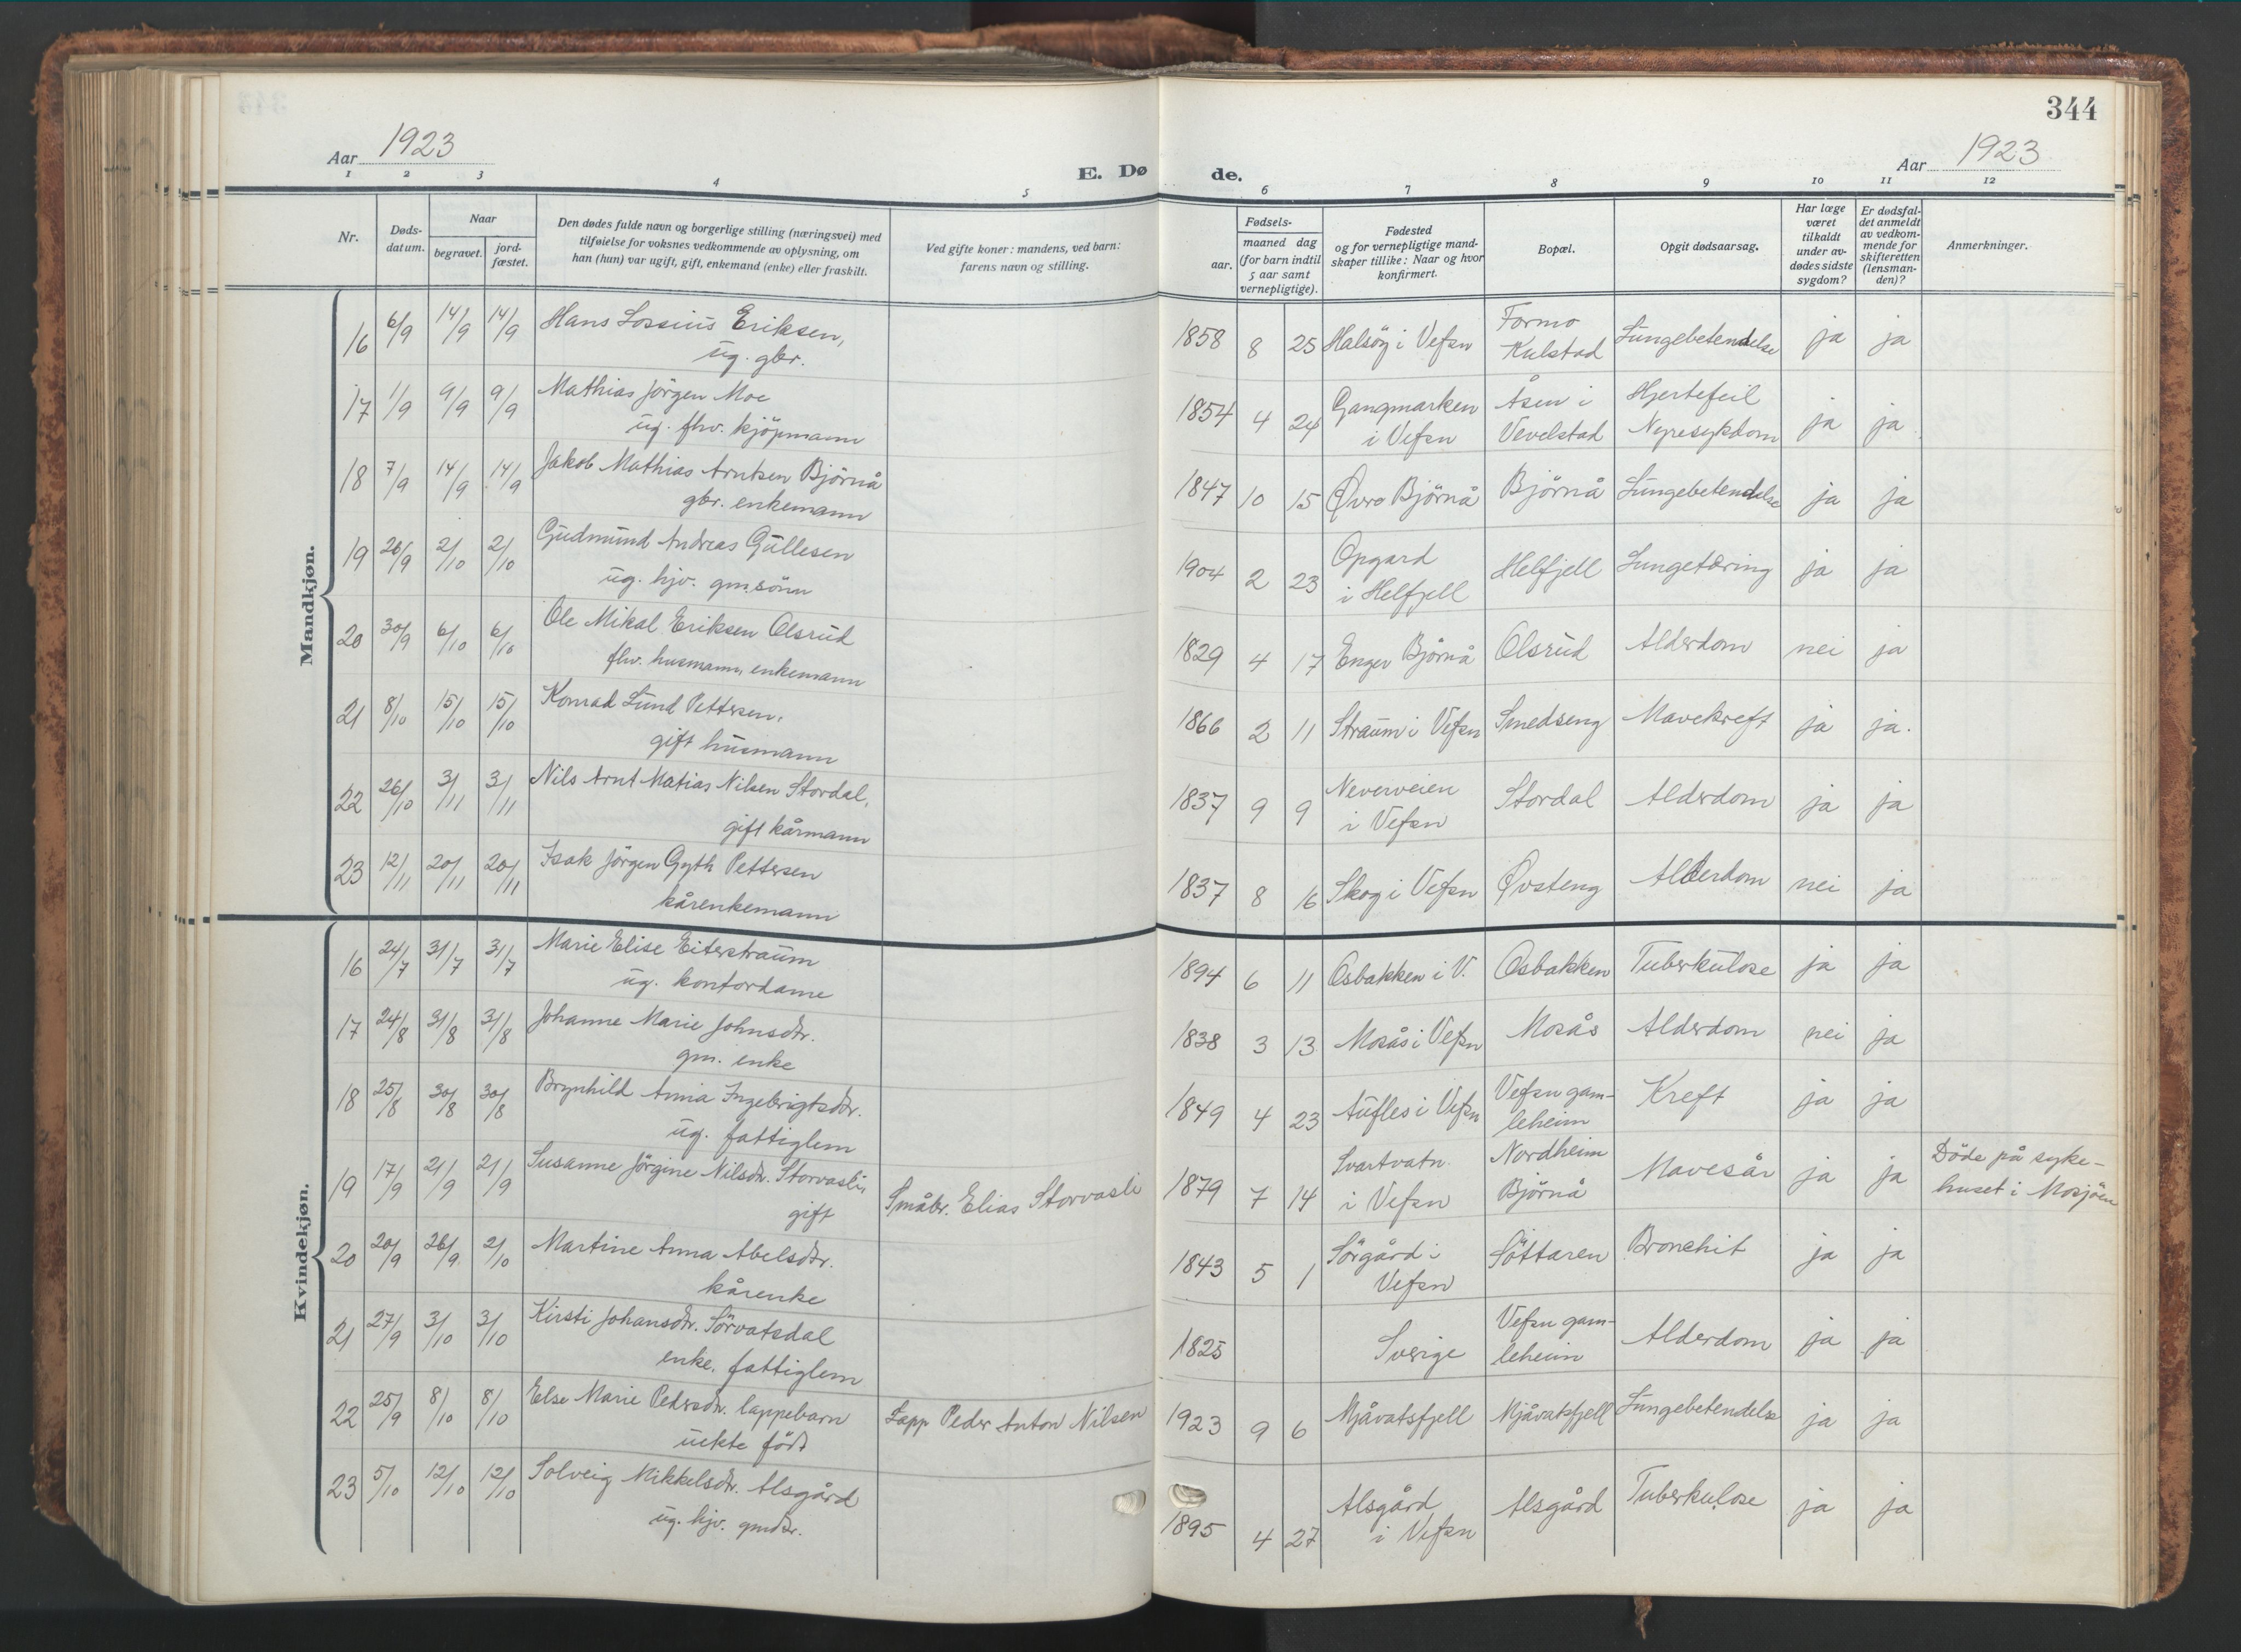 344
Aar 1923
E. Dø
de.
Aar 1923
1 2 3 4 5 6 7 8 9 10 11 12
Nr.
Døds-
datum.
Naar
begravet.
jord-
fæstet.
Den dødes fulde navn og borgerlige stilling (næringsvei) med
tilføielse for voksnes vedkommende av oplysning, om
han (hun) var ugift, gift, enkemand (enke) eller fraskilt.
Ved gifte koner: mandens, ved barn:
farens navn og stilling.
Fødsels-
aar.
maaned dag
(for barn indtil
5 aar samt
vernepligtige).
Fødested
og for vernepligtige mand-
skaper tillike: Naar og hvor
konfirmert.
Bopæl.
Opgit dødsaarsag.
Har læge
været
tilkaldt
under av-
dødes sidste
sygdom?
Er dødsfal-
det anmeldt
av vedkom-
mende for
skifteretten
(lensman-
den)?
Anmerkninger.
Mandkjøn.
16 6/9 14/9 14/9 Hans Lossius Eriksen,
ug. gbr.
1858 8 25 Halsöy i Vefsn
Formo
Kulstad
Lungebetendelse ja ja
17 1/9 9/9 9/9 Mathias Jörgen Moe
ug. fhv. kjöpmann
1854 4 24 Gangmarken
i Vefsn
Åsen i
Vevelstad
Hjertefeil
Nyresykdom
ja ja
18 7/9 14/9 14/9 Jakob Mathias Arntsen Björnå
gbr. enkemann
1847 10 15 Øvre Björnå Björnå Lungebetendelse ja ja
19 26/9 2/10 2/10 Gudmund Andreas Gullesen
ug. hjv. gm.sönn
1904 2 23 Opgard
i Helfjell
Helfjell Lungetæring ja ja
20 30/9 6/10 6/10 Ole Mikal Eriksen Olsrud
fhv. husmann, enkemann
1829 4 17 Enger Björnå Olsrud Alderdom nei ja
21 8/10 15/10 15/10 Konrad Lund Pettersen,
gift husmann
1866 2 11 Straum i Vefsn Smedseng Mavekreft ja ja.
22 26/10 3/11 3/11 Nils Arnt Matias Nilsen Stordal,
gift kårmann
1837 9 9 Neverveien
i Vefsn
Stordal Alderdom ja ja
23 12/11 20/11 20/11 Isak Jörgen Gyth Pettersen
kårenkemann
1837 8 16 Skog i Vefsn Øvsteng Alderdom nei ja
Kvindekjøn.
16 24/7 31/7 31/7 Marie Elise Eiterstraum
ug. kontordame
1894 6 11 Osbakken i V. Osbakken Tuberkulose ja ja
17 24/8 31/8 31/8 Johanne Marie Johnsdtr.
gm. enke
1838 3 13 Mosås i Vefsn Mosås Alderdom nei ja
18 25/8 30/8 30/8 Brynhild Anna Ingebrigtsdtr.
ug. fattiglem
1849 4 23 Aufles i Vefsn
Vefsn gam-
leheim
Kreft ja ja
19 17/9 21/9 21/9 Susanne Jörgine Nilsdtr. Storvasli
gift
Småbr. Elias Storvasli
1879 7 14 Svartvatn
i Vefsn
Nordheim
Björnå
Mavesår ja ja
Döde på syke-
huset i Mosjöen
20 20/9 26/9 2/10 Martine Anna Abelsdtr.
kårenke
1843 5 1 Sörgård i
Vefsn
Söttaren Bronchit ja ja
21 27/9 3/10 3/10 Kirsti Johansdtr. Sörvatsdal
enke. fattiglem
1825 Sverige
Vefsn gam-
leheim
Alderdom ja ja
22 25/9 8/10 8/10 Else Marie Pedersdtr. lappebarn
uekte födt
Lapp Peder Anton Nilsen
1923 9 6 Mjåvatsfjell Mjåvatsfjell Lungebetendelse ja ja
23 5/10 12/10 12/10 Solveig Mikkelsdtr. Alsgård
ug. hjv. gmdtr.
1895 4 27 Alsgård
i Vefsn
Alsgård Tuberkulose ja ja